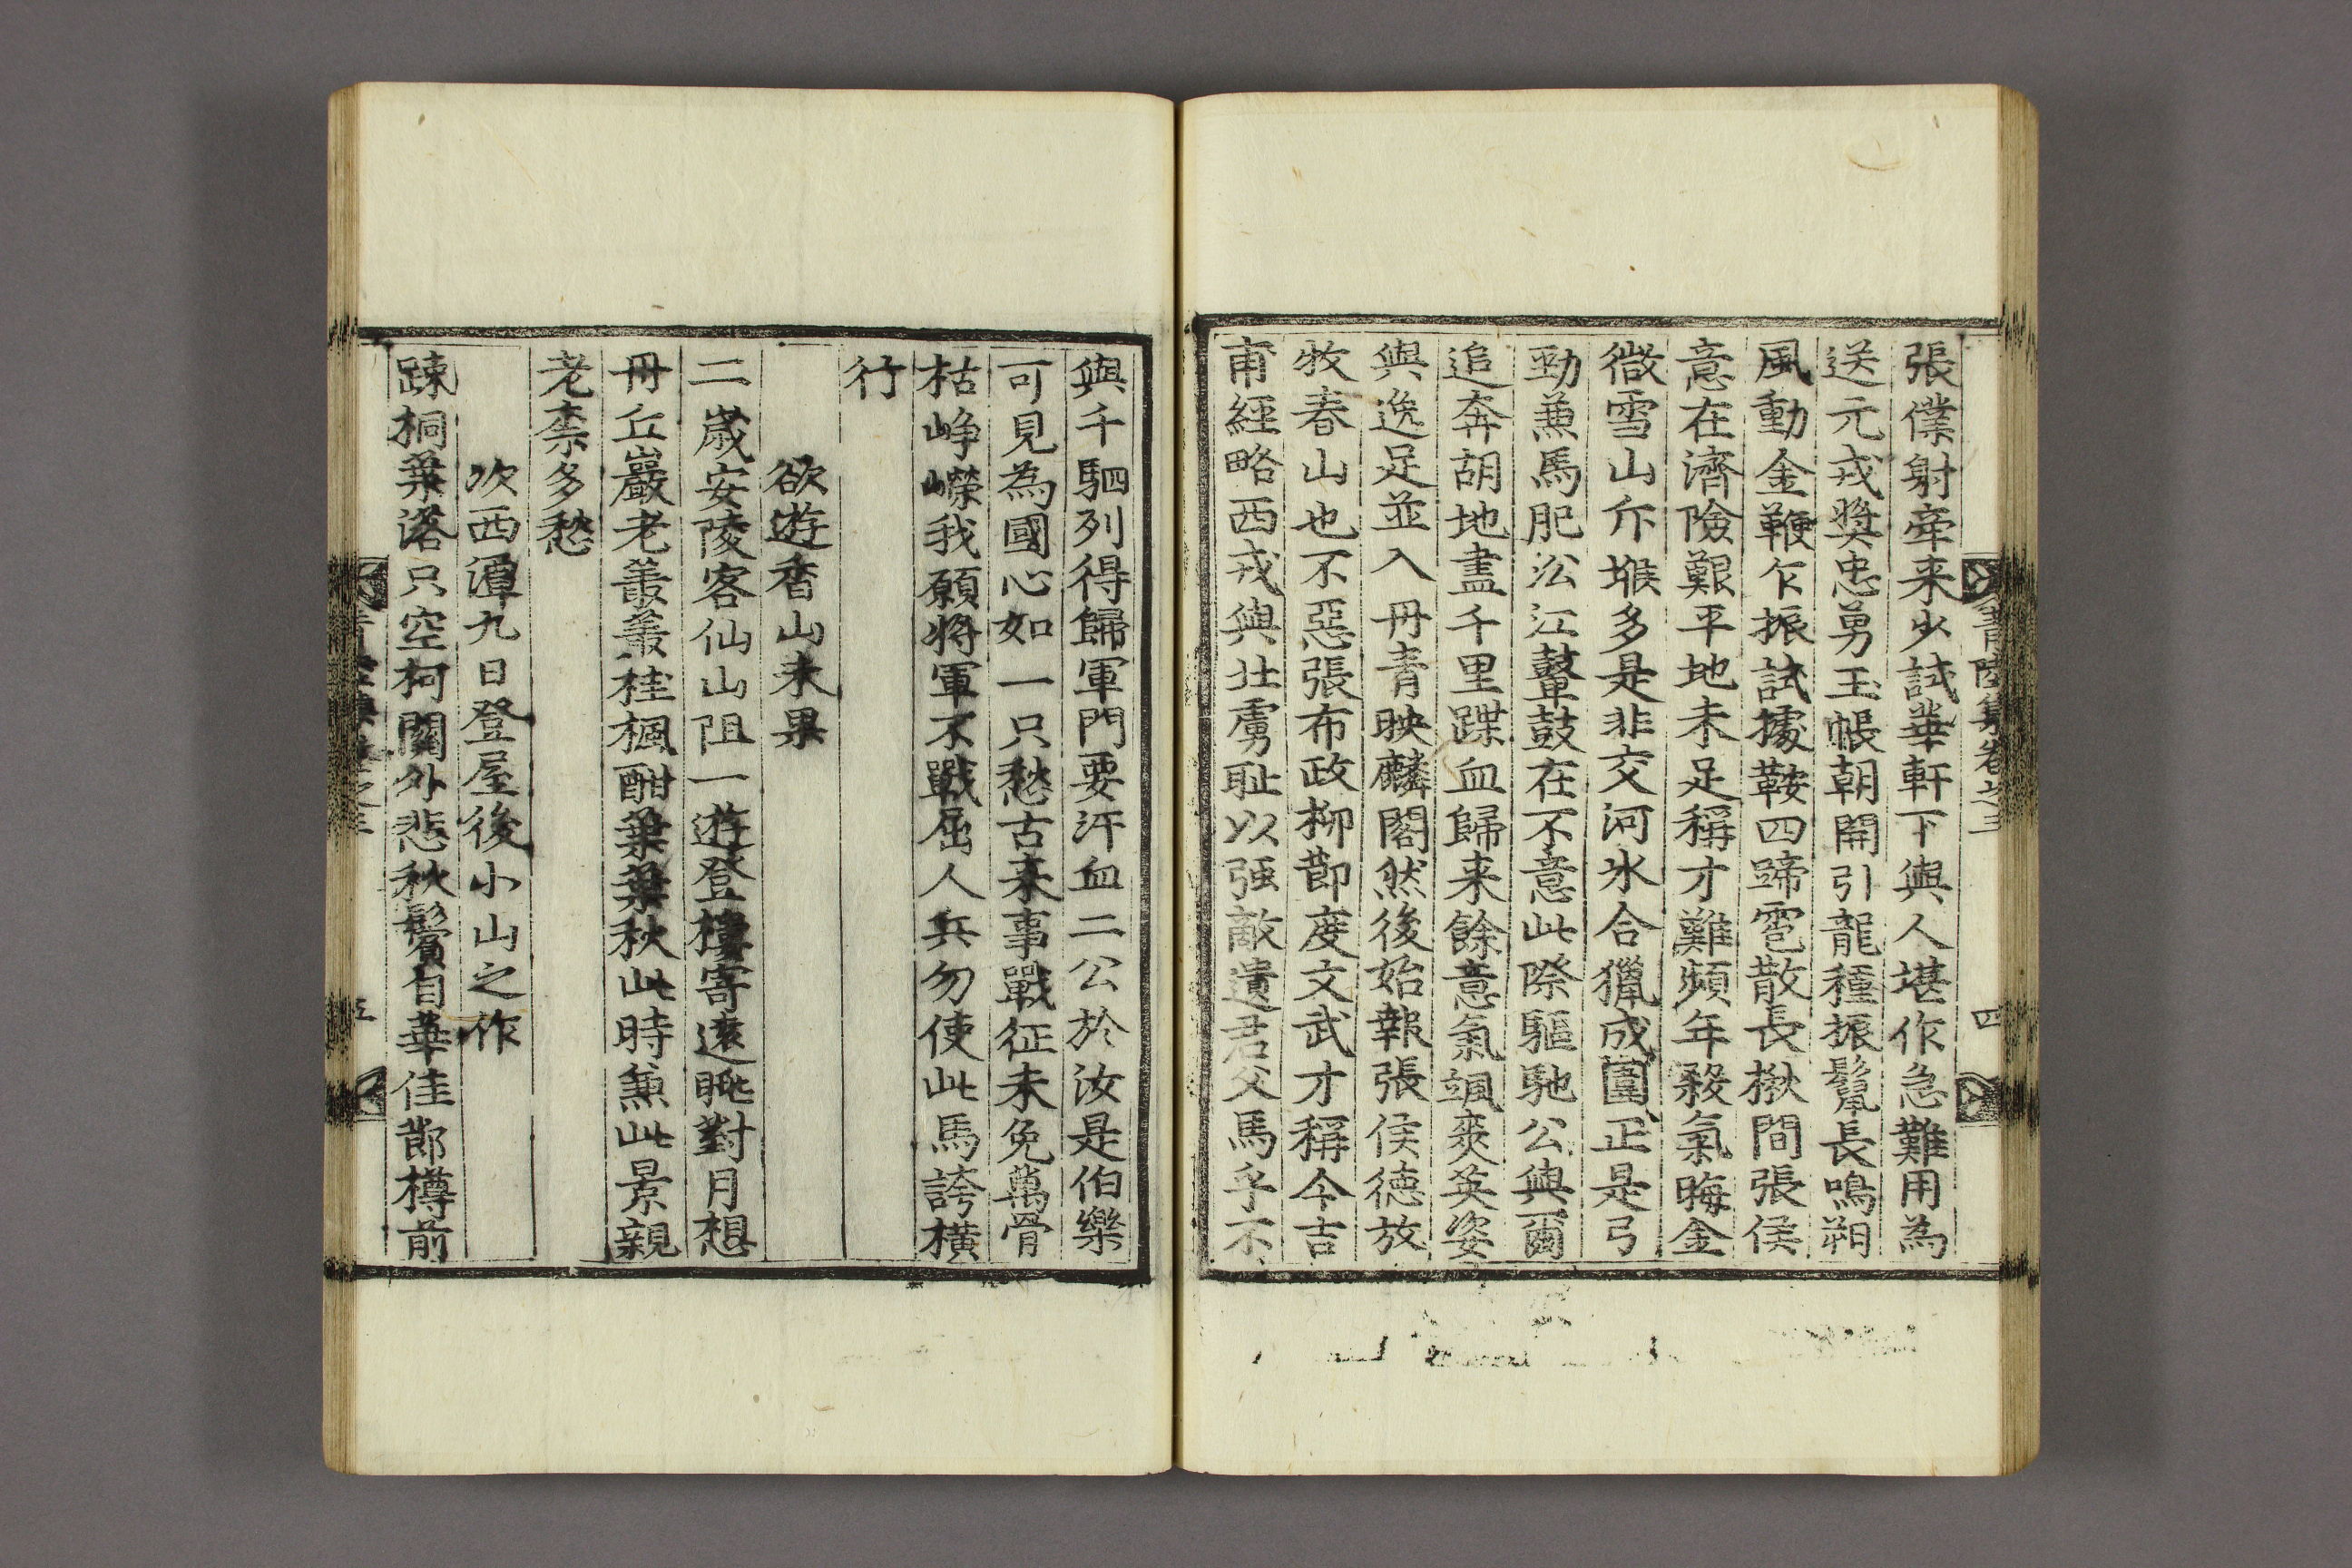 青陸集卷之三 四
張僕射牽来少試華軒下與人堪作急難用為
送元戎奬忠勇玉帳朝開引龍種振鬣長鳴朔
風動金鞭乍振試據鞍四蹄雹散長楸間張侯
意在濟險艱平地未足稱才難頻年殺氣晦金
微雪山斥堠多是非交河氷合獵成圍正是弓
勁兼馬肥㳂江鼙鼓在不意此際驅馳公與爾
追奔胡地盡千里蹀血歸来餘意氣颯爽英姿
與逸足並入丹青映麟閣然後始報張侯德放
牧春山也不惡張布政柳節度文武才稱今吉
甫經略西戎與壮虜耻以强敵遺君父馬乎不
與千駟列得歸軍門要汗血二公於汝是伯樂
可見為國心如一只愁古来事戰征未免萬骨
枯崢嶸我願將軍不戰屈人兵勿使此馬誇横
行
欲遊香山未果
二歲安陵客仙山阻一遊登樓寄遠眺對月想
丹丘巖老叢叢桂楓酣葉葉秋此時兼此景親
老柰多愁
次西潭九日登屋後小山之作
踈桐葉落只空柯關外悲秋鬢自華佳節樽前
五